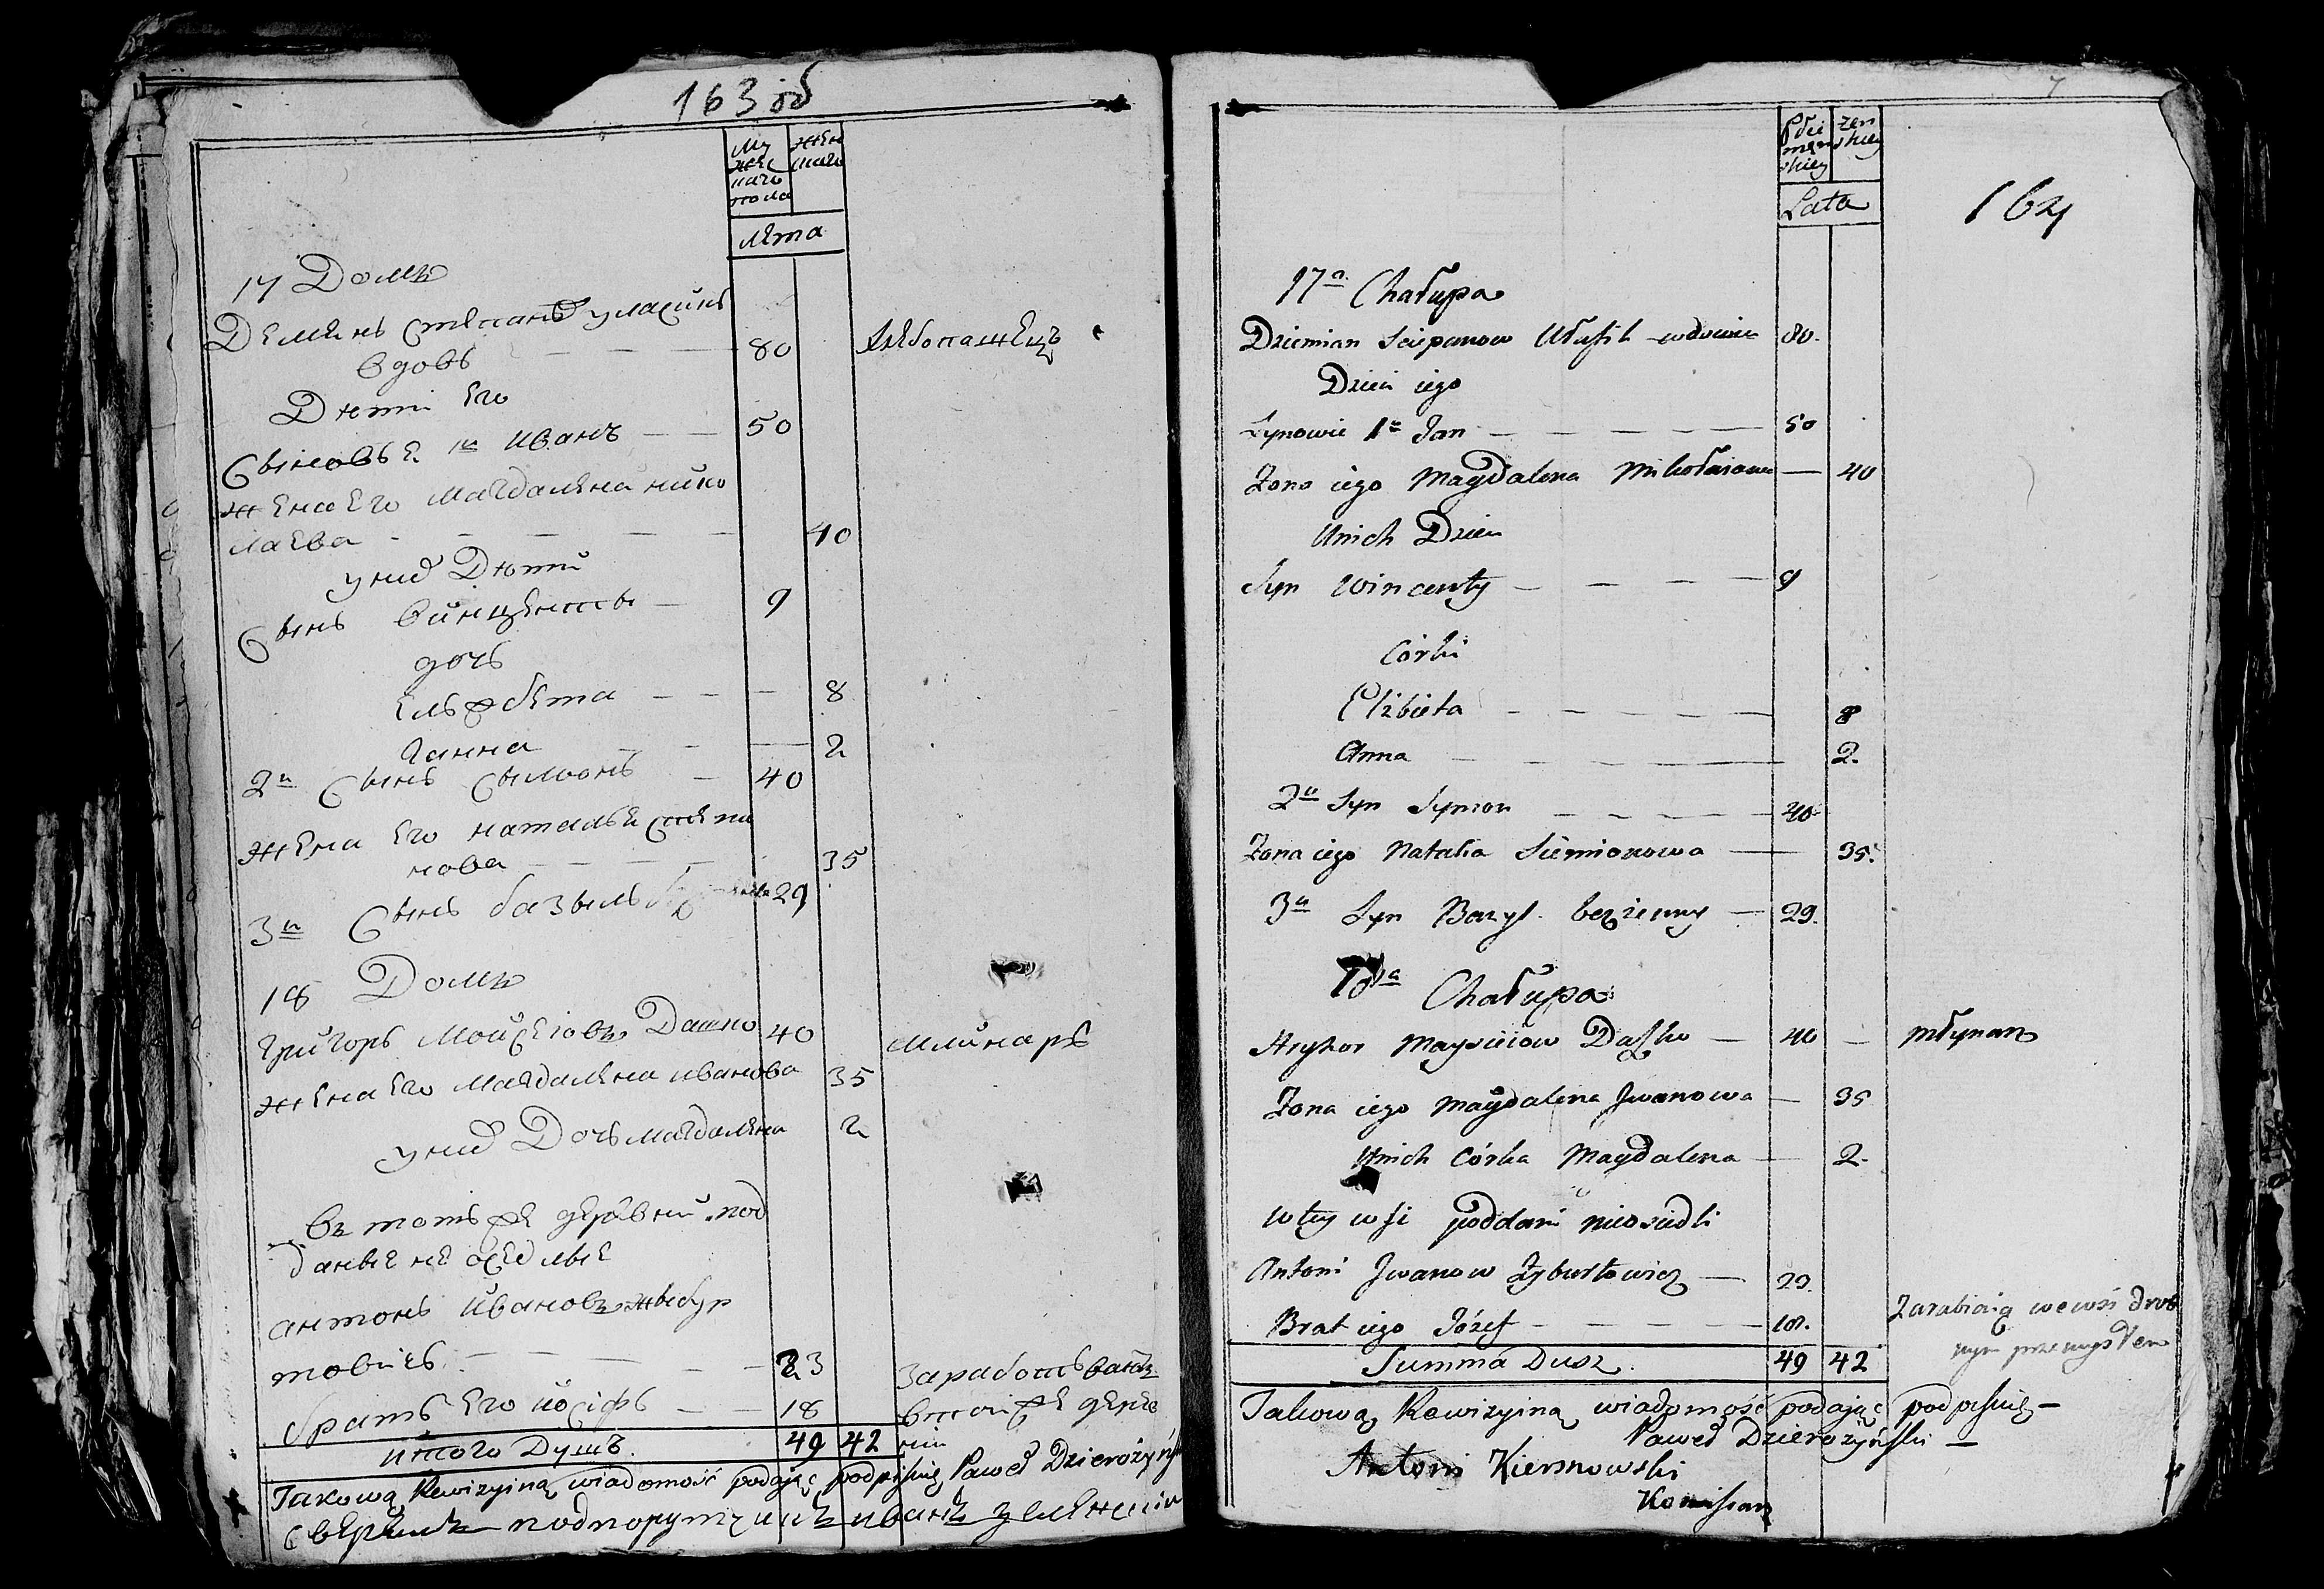 163 об
Му
жес
каго
пола
жен
скаго
лѣта
17 Домъ
Демянъ Степановъ Уласикъ
вдовъ — — — 80 Хлебопашецъ
Дѣти Его
Сыновья 1й Иванъ — — 50
Жена Его Магдалена Нико
лаева — — — 40
у них Дѣти
Сынъ Винцентый — 9
дочь
Ельжбета — — — 8
Ганна — — — 2
2й Сынъ Сымонъ — 40
Жена Его Наталья Семи
нова — — — 35
3й Сынъ Базыль 29
18 Домъ
Григоръ Мойсеіовъ Дашко 40 Млинаръ
Жена Его Магдалена Иванова 35
у них Дочь Магдалена 2
Въ тойже деревни под
даные не оседлые
Антонъ Ивановъ Жибур
товичъ — — — 23
братъ Его Йосифъ — — 18
Итого Душъ 49 42
Takową Rewizyiną wiadomość podaiąc podpisuię Paweł Dzierożyński
Сверялъ подпоручикъ Иванъ
164
Płci
męz
skiey
żen
skiey
Lata
17a Chałupa
Dziemian Sciepanow Ułasik wdowiec 80.
Dzieci iego
Synowie 1n Jan — — — 50
Zona iego Magdalena Mikołaiowa — 40
U nich Dzieci
Syn Wincenty — — — 9
Córki
Elżbieta — — — 8
Anna — — — 2.
2n Syn Symon — — — 40
Zona iego Natalia Siemionowa — 35.
3n Syn Bazyl bezżenny — 29.
18a Chałupa
Hryhor Mayseiow Daszko — 40 — młynarz
Zona iego Magdalena Jwanowa — 35
U nich Córka Magdalena — 2.
W tey wsi poddani nieosiedli
Antoni Jwanow Żyburtowicz — 23.
Brat iego Józef — — — 18. Zarabiaią we wsi drob
nym przemysłem
Summa Dusz. 49 42
Takową Rewizyiną wiadomość podaiąc podpisuię —
Paweł Dzierożyński —
Antoni Kiersnowski
Komisarz